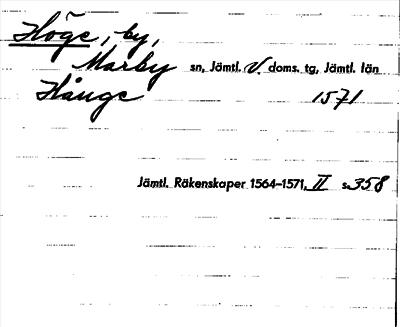 Höge, by,
Marby sn, Jämtl. V. doms. tg, Jämtl. län
Hånge 1571
Jämtl. Räkenskaper 1564–1571, II s. 358